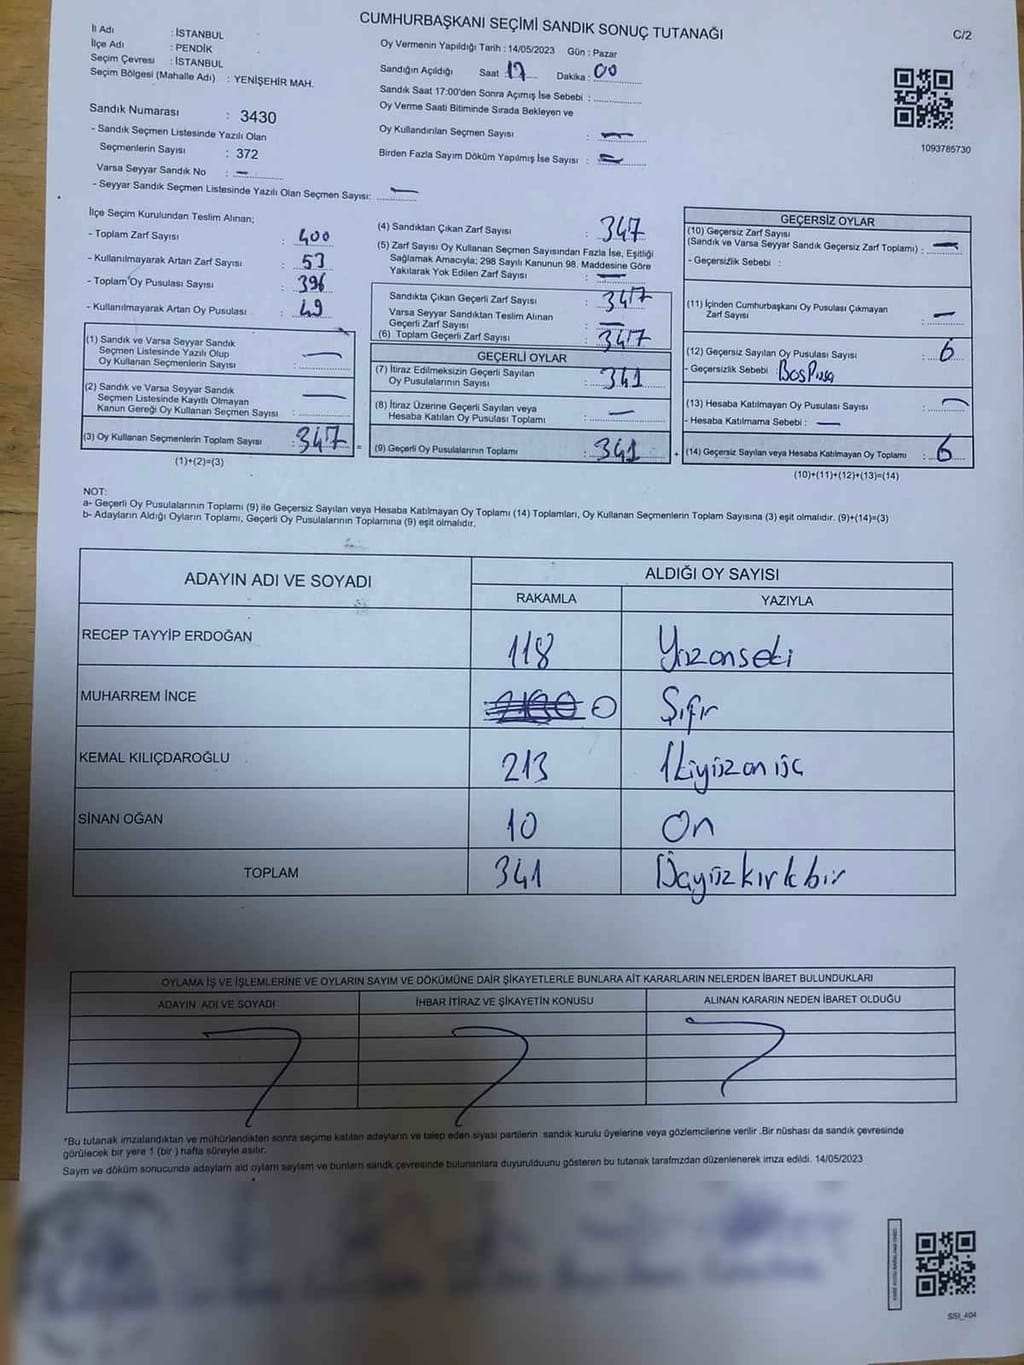 CUMHURBAŞKANI SEÇİMİ SANDIK SONUÇ TUTANAĞI
C/2
İl Adı : İSTANBUL
İlçe Adı : PENDİK
Seçim Çevresi : İSTANBUL
Seçim Bölgesi (Mahalle Adı) : YENİŞEHİR MAH.
Sandık Numarası : 3430
- Sandık Seçmen Listesinde Yazılı Olan
Seçmenlerin Sayısı : 372
Varsa Seyyar Sandık No : –
- Seyyar Sandık Seçmen Listesinde Yazılı Olan Seçmen Sayısı: –
Oy Vermenin Yapıldığı Tarih : 14/05/2023 Gün : Pazar
Sandığın Açıldığı Saat : 17 Dakika : 00
Sandık Saat 17:00'den Sonra Açımış İse Sebebi :
Oy Verme Saati Bitiminde Sırada Bekleyen ve
Oy Kullandırılan Seçmen Sayısı : –
Birden Fazla Sayım Döküm Yapılmış İse Sayısı : –
1093785730
İlçe Seçim Kurulundan Teslim Alınan;
- Toplam Zarf Sayısı : 400
- Kullanılmayarak Artan Zarf Sayısı : 53
- Toplam Oy Pusulası Sayısı : 396
- Kullanılmayarak Artan Oy Pusulası : 49
(1) Sandık ve Varsa Seyyar Sandık
Seçmen Listesinde Yazılı Olup
Oy Kullanan Seçmenlerin Sayısı : –
(2) Sandık ve Varsa Seyyar Sandık
Seçmen Listesinde Kayıtlı Olmayan
Kanun Gereği Oy Kullanan Seçmen Sayısı : –
(3) Oy Kullanan Seçmenlerin Toplam Sayısı : 347
(1)+(2)=(3)
(4) Sandıktan Çıkan Zarf Sayısı : 347
(5) Zarf Sayısı Oy Kullanan Seçmen Sayısından Fazla İse, Eşitliği
Sağlamak Amacıyla; 298 Sayılı Kanunun 98. Maddesine Göre
Yakılarak Yok Edilen Zarf Sayısı : –
Sandıkta Çıkan Geçerli Zarf Sayısı : 347
Varsa Seyyar Sandıktan Teslim Alınan
Geçerli Zarf Sayısı : –
(6) Toplam Geçerli Zarf Sayısı : 347
GEÇERLİ OYLAR
(7) İtiraz Edilmeksizin Geçerli Sayılan
Oy Pusulalarının Sayısı : 341
(8) İtiraz Üzerine Geçerli Sayılan veya
Hesaba Katılan Oy Pusulası Toplamı : –
= (9) Geçerli Oy Pusulalarının Toplamı : 341
GEÇERSİZ OYLAR
(10) Geçersiz Zarf Sayısı
(Sandık ve Varsa Seyyar Sandık Geçersiz Zarf Toplamı) : –
- Geçersizlik Sebebi :
(11) İçinden Cumhurbaşkanı Oy Pusulası Çıkmayan
Zarf Sayısı : –
(12) Geçersiz Sayılan Oy Pusulası Sayısı : 6
- Geçersizlik Sebebi :
(13) Hesaba Katılmayan Oy Pusulası Sayısı : –
- Hesaba Katılmama Sebebi : –
+ (14) Geçersiz Sayılan veya Hesaba Katılmayan Oy Toplamı : 6
(10)+(11)+(12)+(13)=(14)
NOT:
a- Geçerli Oy Pusulalarının Toplamı (9) ile Geçersiz Sayılan veya Hesaba Katılmayan Oy Toplamı (14) Toplamları, Oy Kullanan Seçmenlerin Toplam Sayısına (3) eşit olmalıdır. (9)+(14)=(3)
b- Adayların Aldığı Oyların Toplamı, Geçerli Oy Pusulalarının Toplamına (9) eşit olmalıdır.
ADAYIN ADI VE SOYADI ALDIĞI OY SAYISI
RAKAMLA YAZIYLA
RECEP TAYYİP ERDOĞAN 118 Yüzonseki
MUHARREM İNCE 0 Sıfır
KEMAL KILIÇDAROĞLU 213 İkiyüzonüç
SİNAN OĞAN 10 On
TOPLAM 341 Üçyüzkırkbir
OYLAMA İŞ VE İŞLEMLERİNE VE OYLARIN SAYIM VE DÖKÜMÜNE DAİR ŞİKAYETLERLE BUNLARA AİT KARARLARIN NELERDEN İBARET BULUNDUKLARI
ADAYIN ADI VE SOYADI İHBAR İTİRAZ VE ŞİKAYETİN KONUSU ALINAN KARARIN NEDEN İBARET OLDUĞU
*Bu tutanak imzalandıktan ve mühürlendikten sonra seçime katılan adayların ve talep eden siyasi partilerin sandık kurulu üyelerine veya gözlemcilerine verilir .Bir nüshası da sandık çevresinde
görülecek bir yere 1 (bir ) hafta süreyle asılır.
Sayım ve döküm sonucunda adayların ald oyların sayların ve bunların sandk çevresinde bulunanlara duyurulduunu gösteren bu tutanak tarafmzdan düzenlenerek imza edildi. 14/05/2023
SSI_404